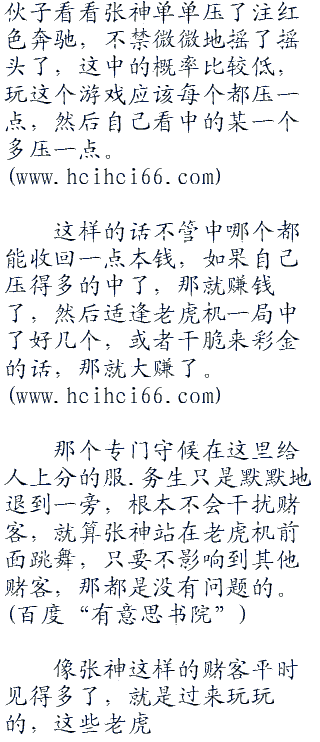 伙子看看张神单单压了注红
色奔驰，不禁微微地摇了摇
头了，这中的概率比较低，
玩这个游戏应该每个都压一
点，然后自己看中的某一个
多压一点。
(www.hcihci66.com)
这样的话不管中哪个都
能收回一点本钱，如果自己
压得多的中了，那就赚钱
了，然后适逢老虎机一局中
了好几个，或者干脆来彩金
的话，那就大赚了。
(www.hcihci66.com)
那个专门守候在这里给
人上分的服.务生只是默默地
退到一旁，根本不会干扰赌
客，就算张神站在老虎机前
面跳舞，只要不影响到其他
赌客，那都是没有问题的。
(百度“有意思书院”)
像张神这样的赌客平时
见得多了，就是过来玩玩
的，这些老虎